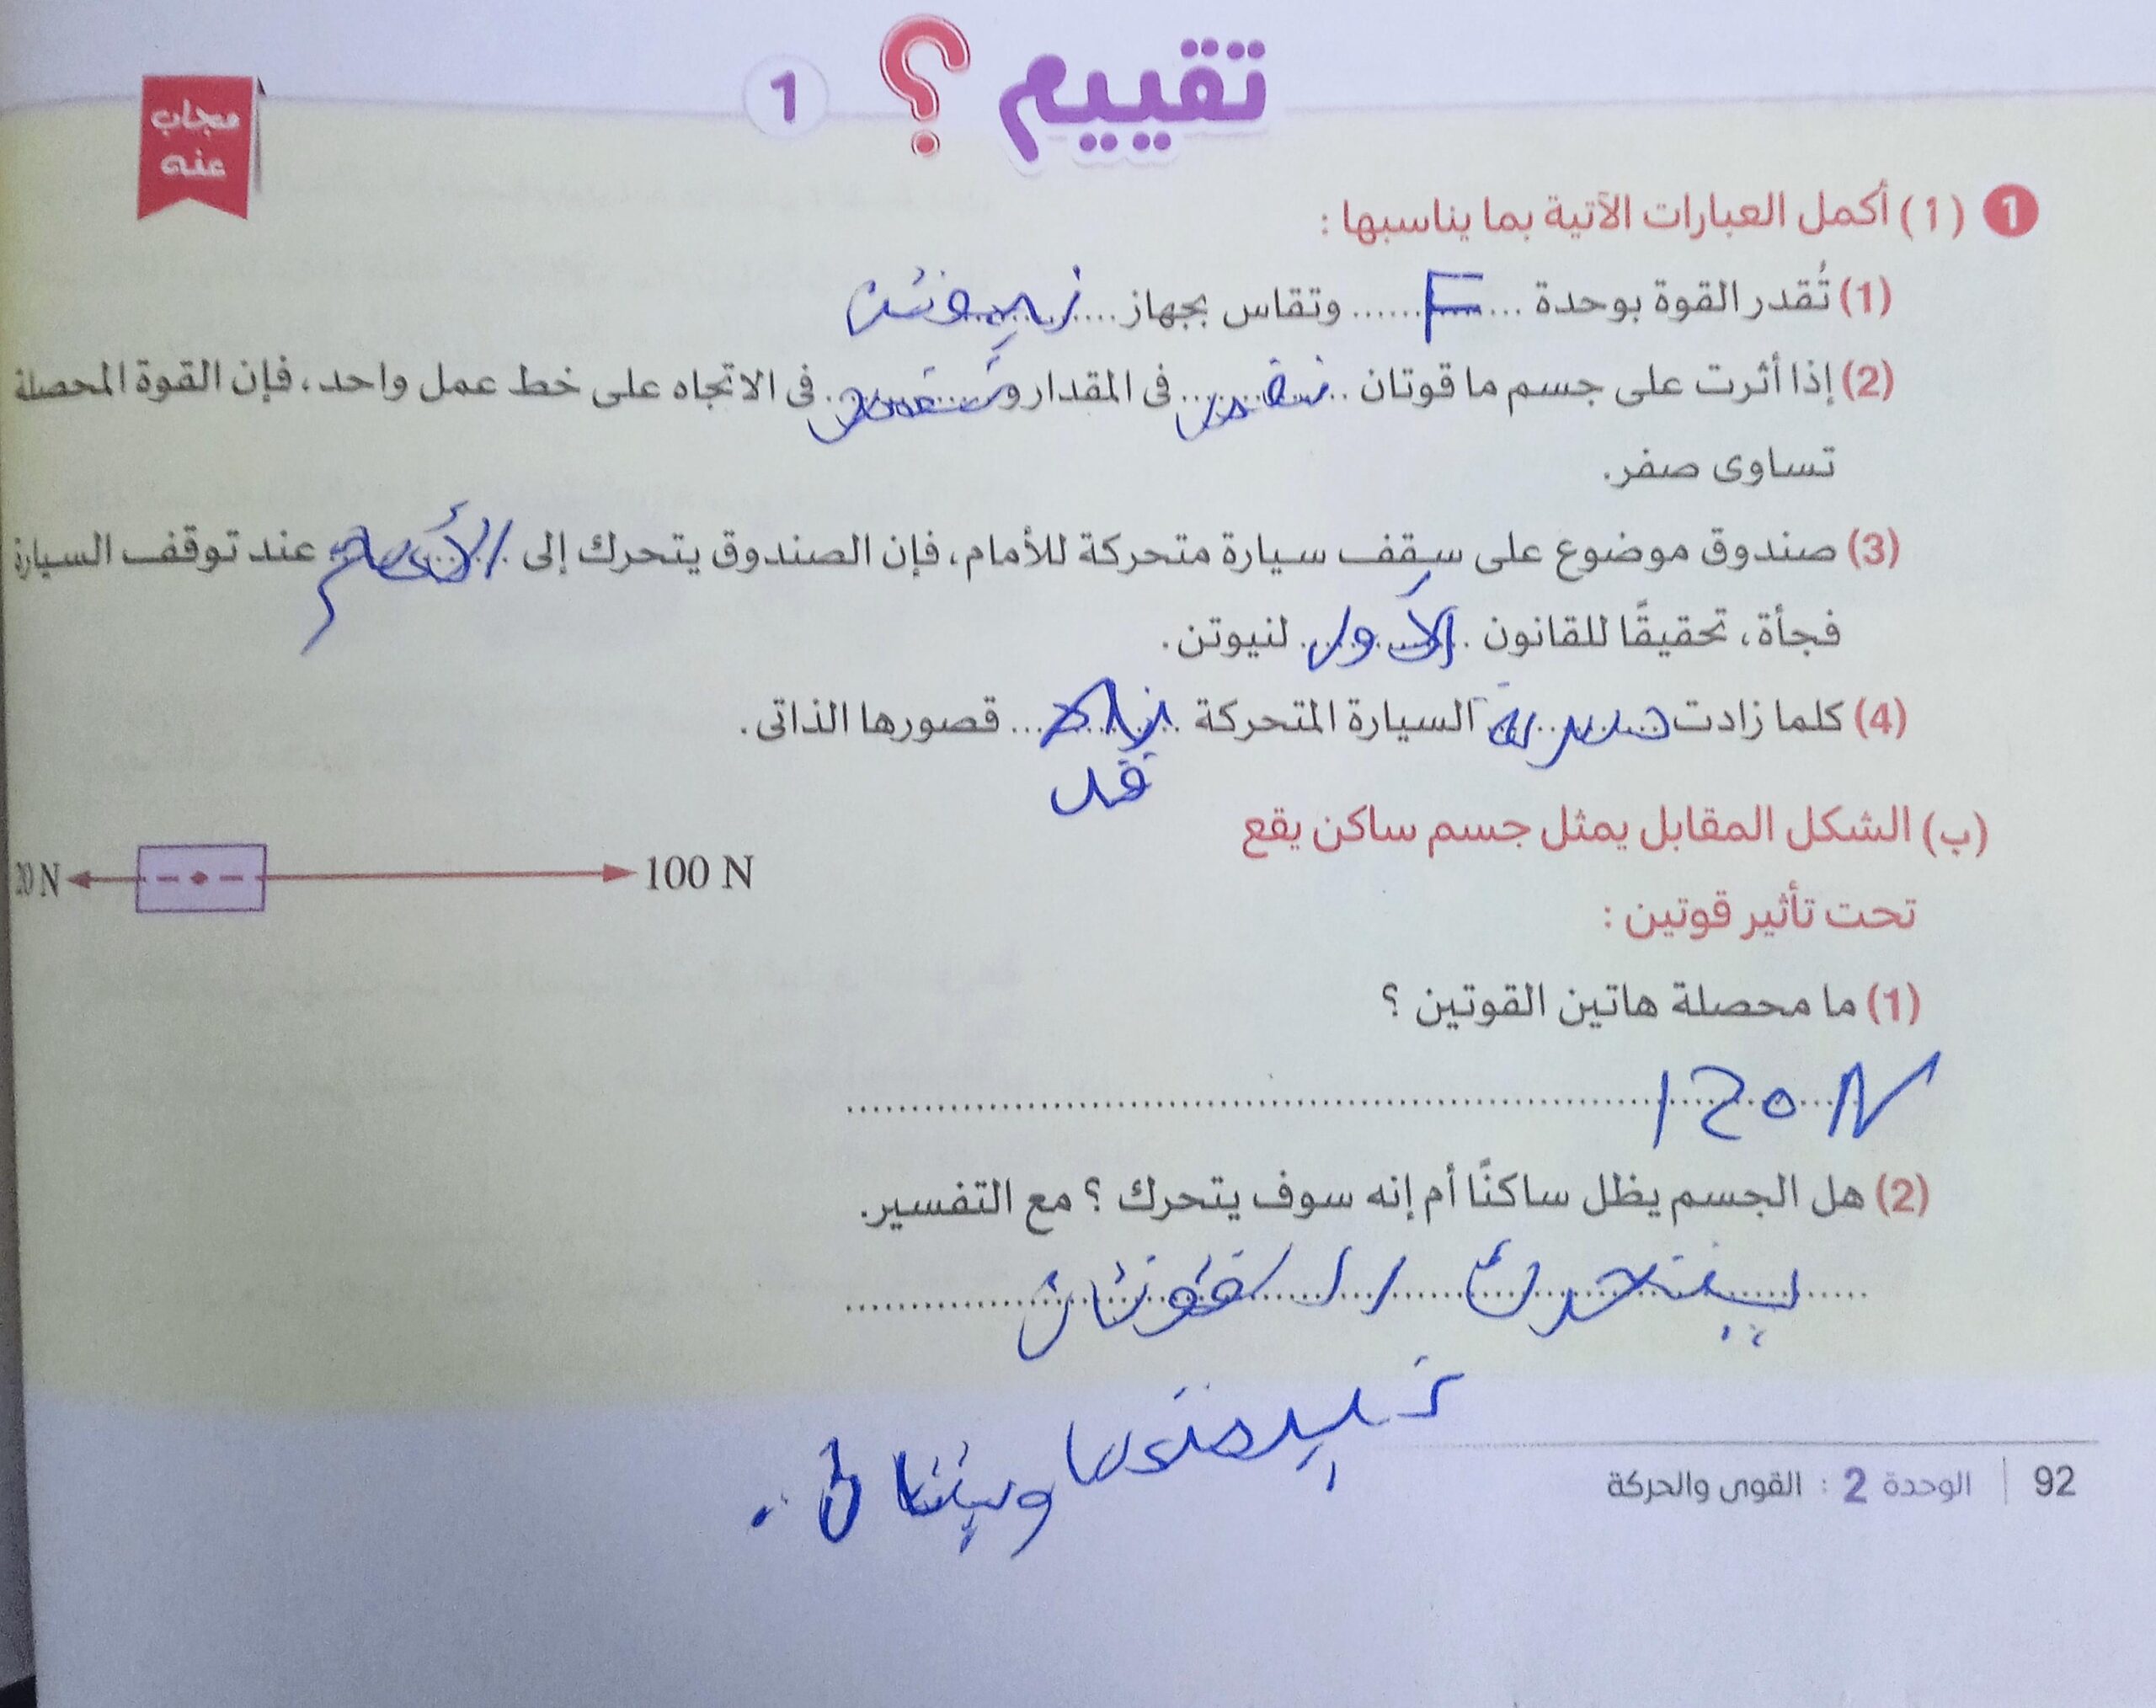 تقييم ؟ 1
مجاب
عنه
1 (1) أكمل العبارات الآتية بما يناسبها :
(1) تُقدر القوة بوحدة ...F... وتقاس بجهاز نيوتن
(2) إذا أثرت على جسم ما قوتان ...... فى المقدار و ...... فى الاتجاه على خط عمل واحد، فإن القوة المحصلة
تساوى صفر.
(3) صندوق موضوع على سقف سيارة متحركة للأمام، فإن الصندوق يتحرك إلى الأمام عند توقف السيارة
فجأة، تحقيقًا للقانون الأول لنيوتن.
(4) كلما زادت سرعة السيارة المتحركة ...... قصورها الذاتى.
(ب) الشكل المقابل يمثل جسم ساكن يقع
20 N 100 N
تحت تأثير قوتين :
(1) ما محصلة هاتين القوتين ؟
120 N
(2) هل الجسم يظل ساكنًا أم إنه سوف يتحرك ؟ مع التفسير.
يتحرك القوتان
92 | الوحدة 2 : القوى والحركة